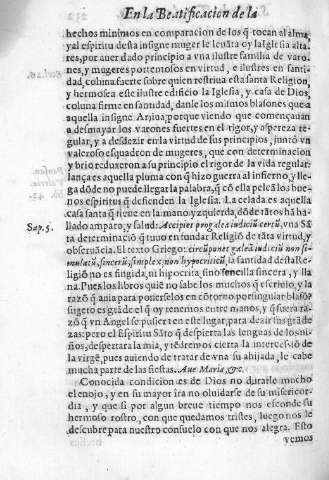 En la Beatificacion de la
hechos minimos en comparacion de los q̃ tocan al alma, y
al espiritu desta insigne muger le leuãta oy la Iglesia alta
res, por auer dado principio a vna ilustre familia de varo
nes, y mugeres portentosos en virtud, e ilustres en santi-
dad, coluna fuerte sobre quien restriua esta santa Religion,
y hermosea este ilustre edificio la Iglesia, y casa de Dios,
coluna firme en santidad, danle los mismos blasones que a
aquella insigne porque viendo que començauan
a desmayar los varones fuertes en el rigor, y aspereza re-
gular, y a desdezir en la virtud de sus principios, juntò vn
valeroso esquadron de mugeres, que con determinacion
y brio reduxeron a su principio el rigor de la vida regular:
lança es aquella pluma con q̃ hizo guerra al infierno, y lle
ga dõde no puede llegar la palabra, q̃ cõ ella peleã los bue-
nos espiritus q̃ defienden la Iglesia. La celada es aquella
casa santa q̃ tiene en la mano yzquierda, dõde tãtos hã ha-
Sap. 5.
llado amparo, y salud: Accipiet pro galea iudiciũ certũ, vna Sã
ta determinaciõ q̃ tuuo en fundar Religiõ de tãta virtud, y
obseruãcia. El texto Griego: circũponet galeã iudiciũ non si-
mulatũ, sincerũ, simplex, non hypocriticũ, la santidad desta Re
ligiõ no es fingida, ni hipocrita, sino sencilla sincera, y lla
na. Pues los libros quiẽ no sabe los muchos q̃ escriuio, y la
razõ q̃ auia para ponerselos en cõtorno por singular blasõ?
sugeto es grãde el q̃ oy tenemos entre manos, y q̃ fuera ra-
zõ q̃ vn Angel se pusiera en este lugar, para dezir sus grãde
zas: pero el Espiritu Sãto q̃ despierta las lenguas de los ni-
ños, despertara la mia, y tẽdremos cierta la intercessiõ de
la virgẽ, pues auiendo de tratar de vna su ahijada, le cabe
mucha parte de las fiestas. Aue Maria, &c.
Conocida condicion es de Dios no durarle mucho
el enojo, y en su mayor ira no oluidarse de su misericor-
dia, y que si por algun breue tiempo nos esconde su
hermoso rostro, con que quedamos tristes, luego nos le
descubre para nuestro consuelo con que nos alegra. Esto
vemos